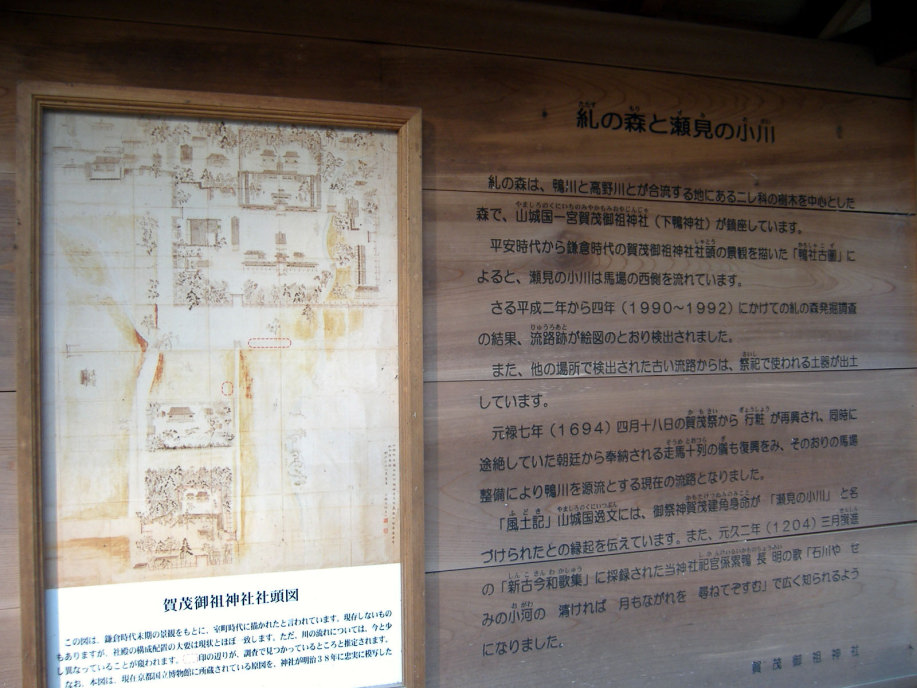 糺の森と瀬見の小川
糺の森は、鴨川と高野川とが合流する地にあるニレ科の樹木を中心とした
森で、山城国一宮賀茂御祖神社（下鴨神社）が鎮座しています。
平安時代から鎌倉時代の賀茂御祖神社社頭の景観を描いた「鴨社古圖」に
よると、瀬見の小川は馬場の西側を流れています。
さる平成二年から四年（1990～1992）にかけての糺の森発掘調査
の結果、流路跡が絵図のとおり検出されました。
また、他の場所で検出された古い流路からは、祭祀で使われる土器が出土
しています。
元禄七年（1694）四月十八日の賀茂祭から行粧が再興され、同時に
途絶していた朝廷から奉納される走馬十列の儀も復興をみ、そのおりの馬場
整備により鴨川を源流とする現在の流路となりました。
「風土記」山城国逸文には、御祭神賀茂建角身命が「瀬見の小川」と名
づけられたとの縁起を伝えています。また、元久二年（1204）三月奏進
の「新古今和歌集」に採録された当神社祀官係累鴨長明の歌「石川や せ
みの小河の 清ければ 月もながれを 尋ねてぞすむ」で広く知られるよう
になりました。
賀茂御祖神社
賀茂御祖神社社頭図
この図は、鎌倉時代末期の景観をもとに、室町時代に描かれたと言われています。現存しないもの
もありますが、社殿の構成配置の大要は現状とほぼ一致します。ただ、川の流れについては、今と少
し異なっていることが窺われます。印の辺りが、調査で見つかっているところと推定されます。
なお、本図は、現在京都国立博物館に所蔵されている原図を、神社が明治３８年に忠実に模写した